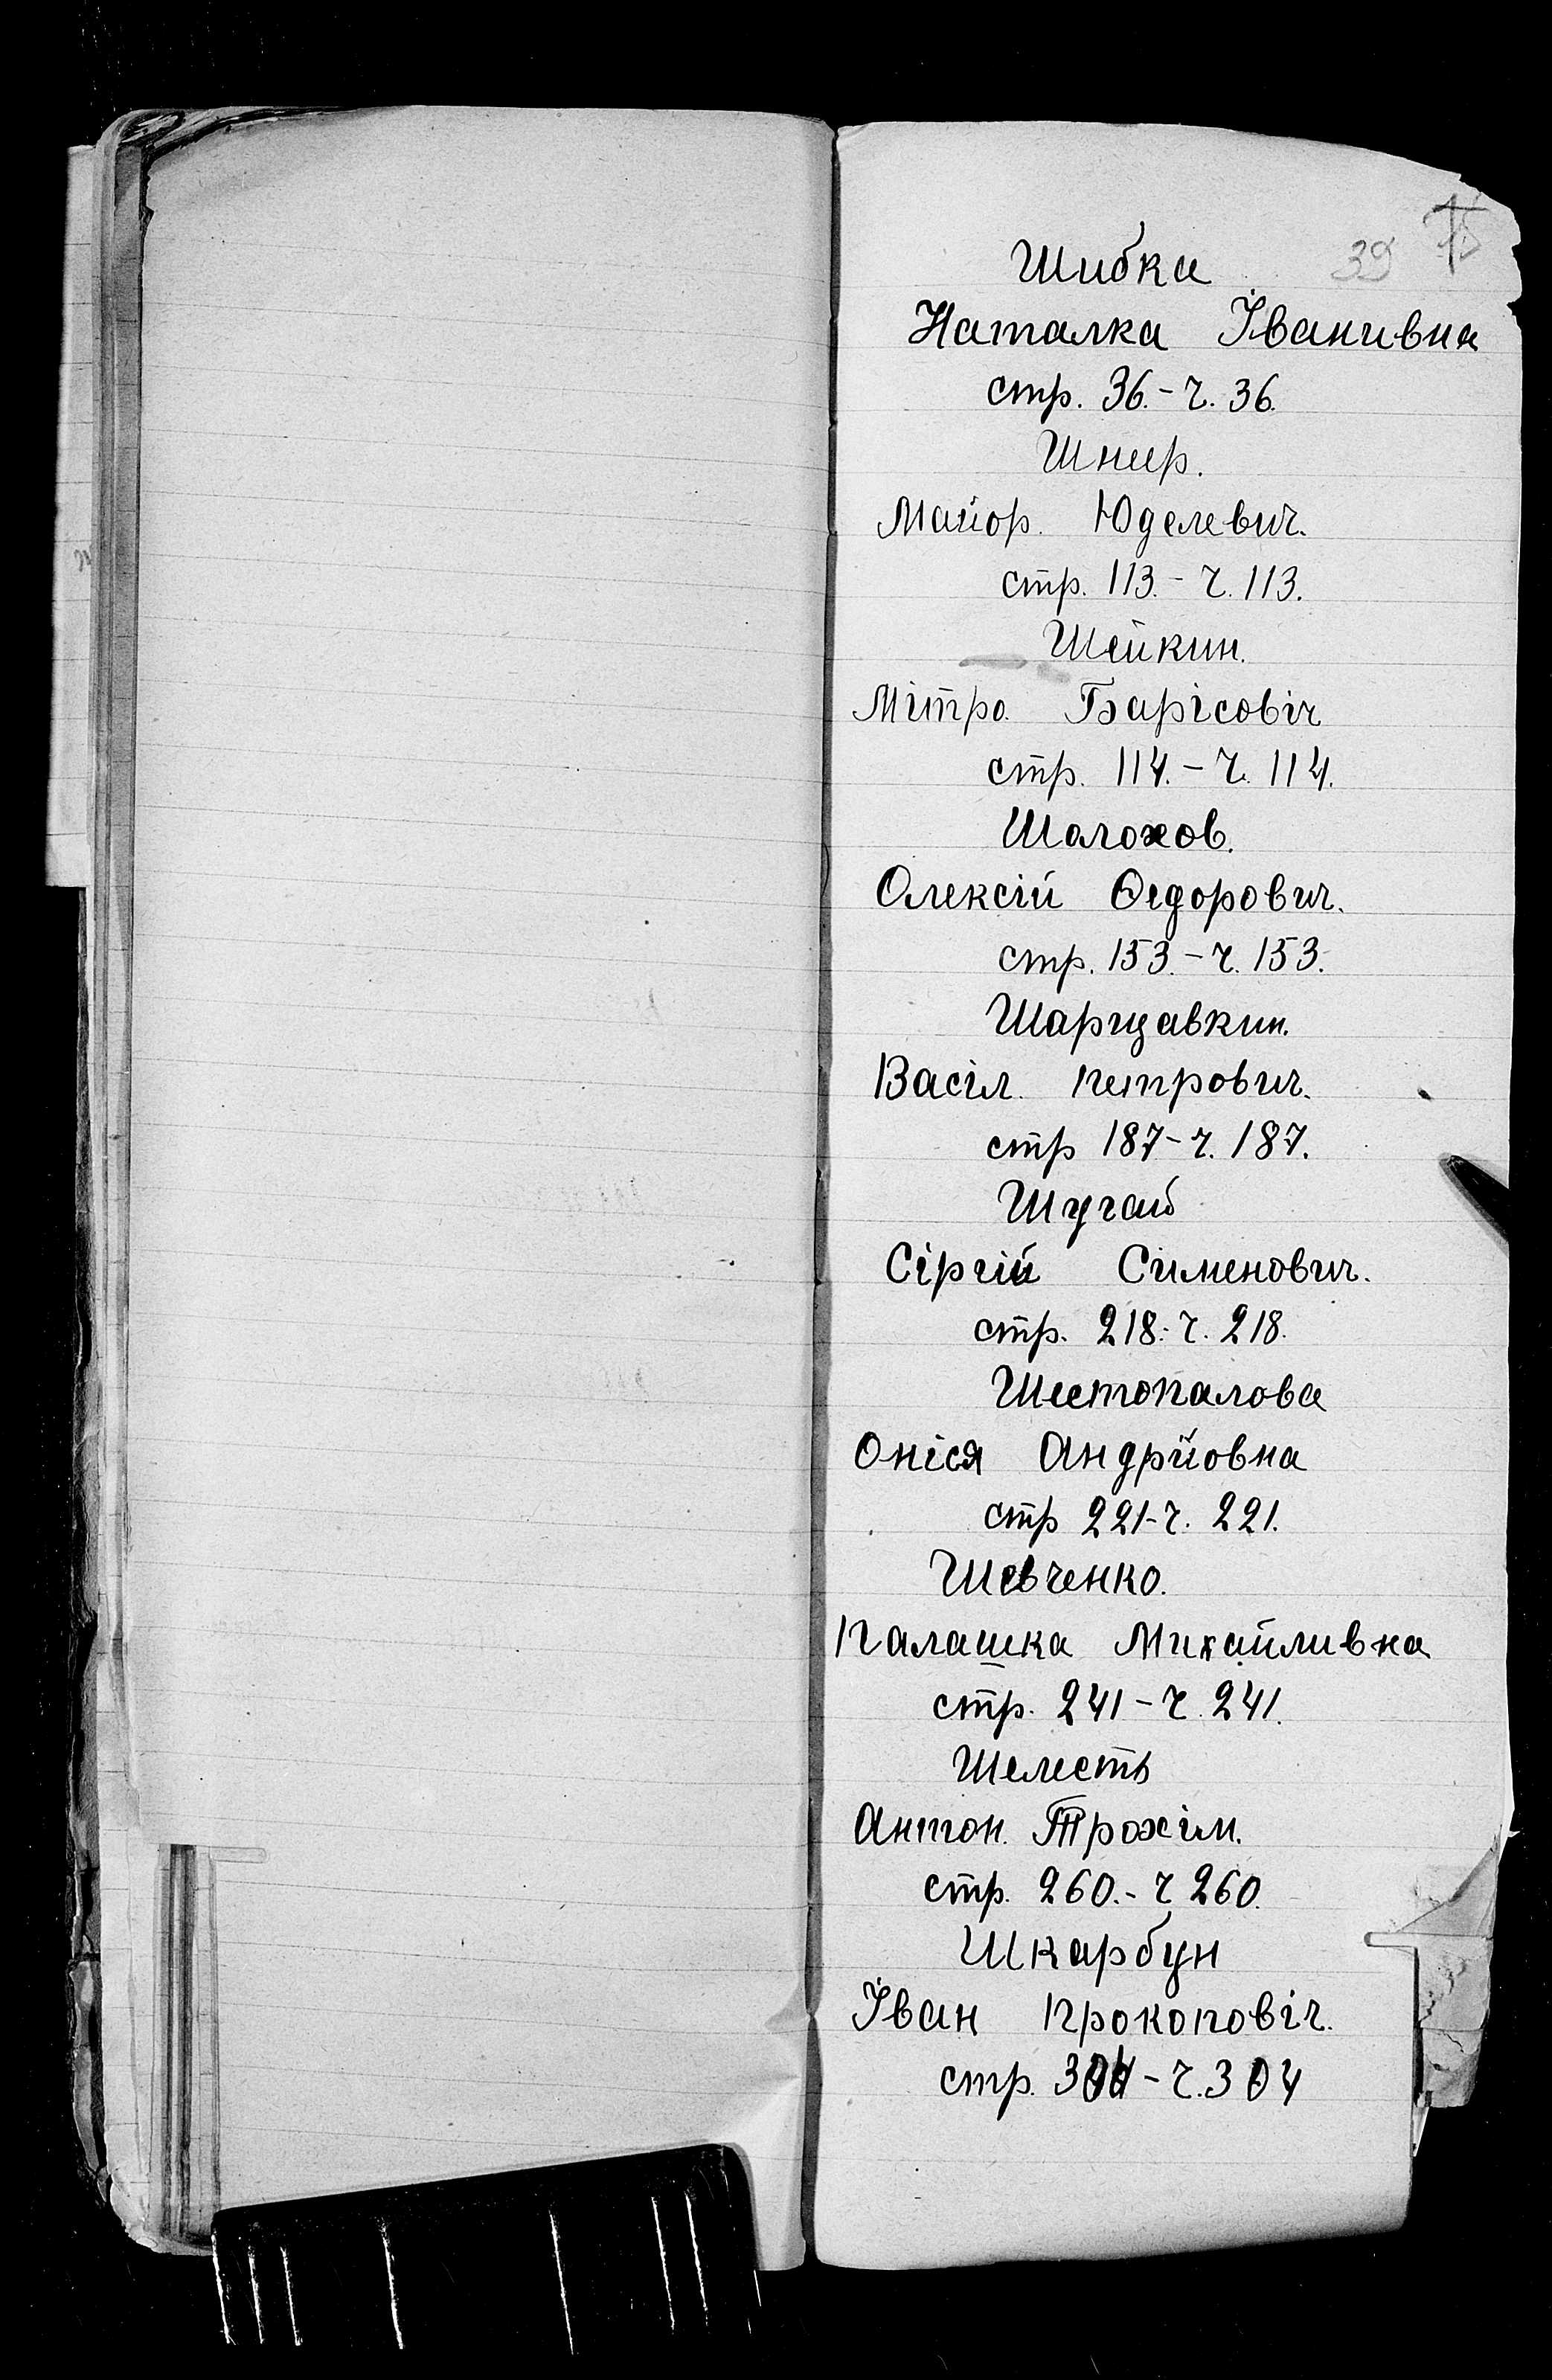 39 15
Шибка
Наталка Іванивна
стр. 36.-ч. 36.
Шнеер.
Майор. Юделевич.
стр. 113.-ч. 113.
Шейкин.
Мітро. Барісовіч
стр. 114.-ч. 114.
Шолохов.
Олексій Ѳедорович.
стр. 153.-ч. 153.
Шарщавкин.
Васіл. Петрович.
стр 187-ч. 187.
Шугай
Сіргій Сименович.
стр. 218.-ч. 218.
Шестопалова
Оніся Андрійовна
стр 221-ч. 221.
Шевченко.
Палашка Михайливна
стр. 241-ч. 241.
Шелесть
Антон. Трохім.
стр. 260.-ч 260.
Шкарбун
Іван Прокоповіч.
стр. 304-ч. 304